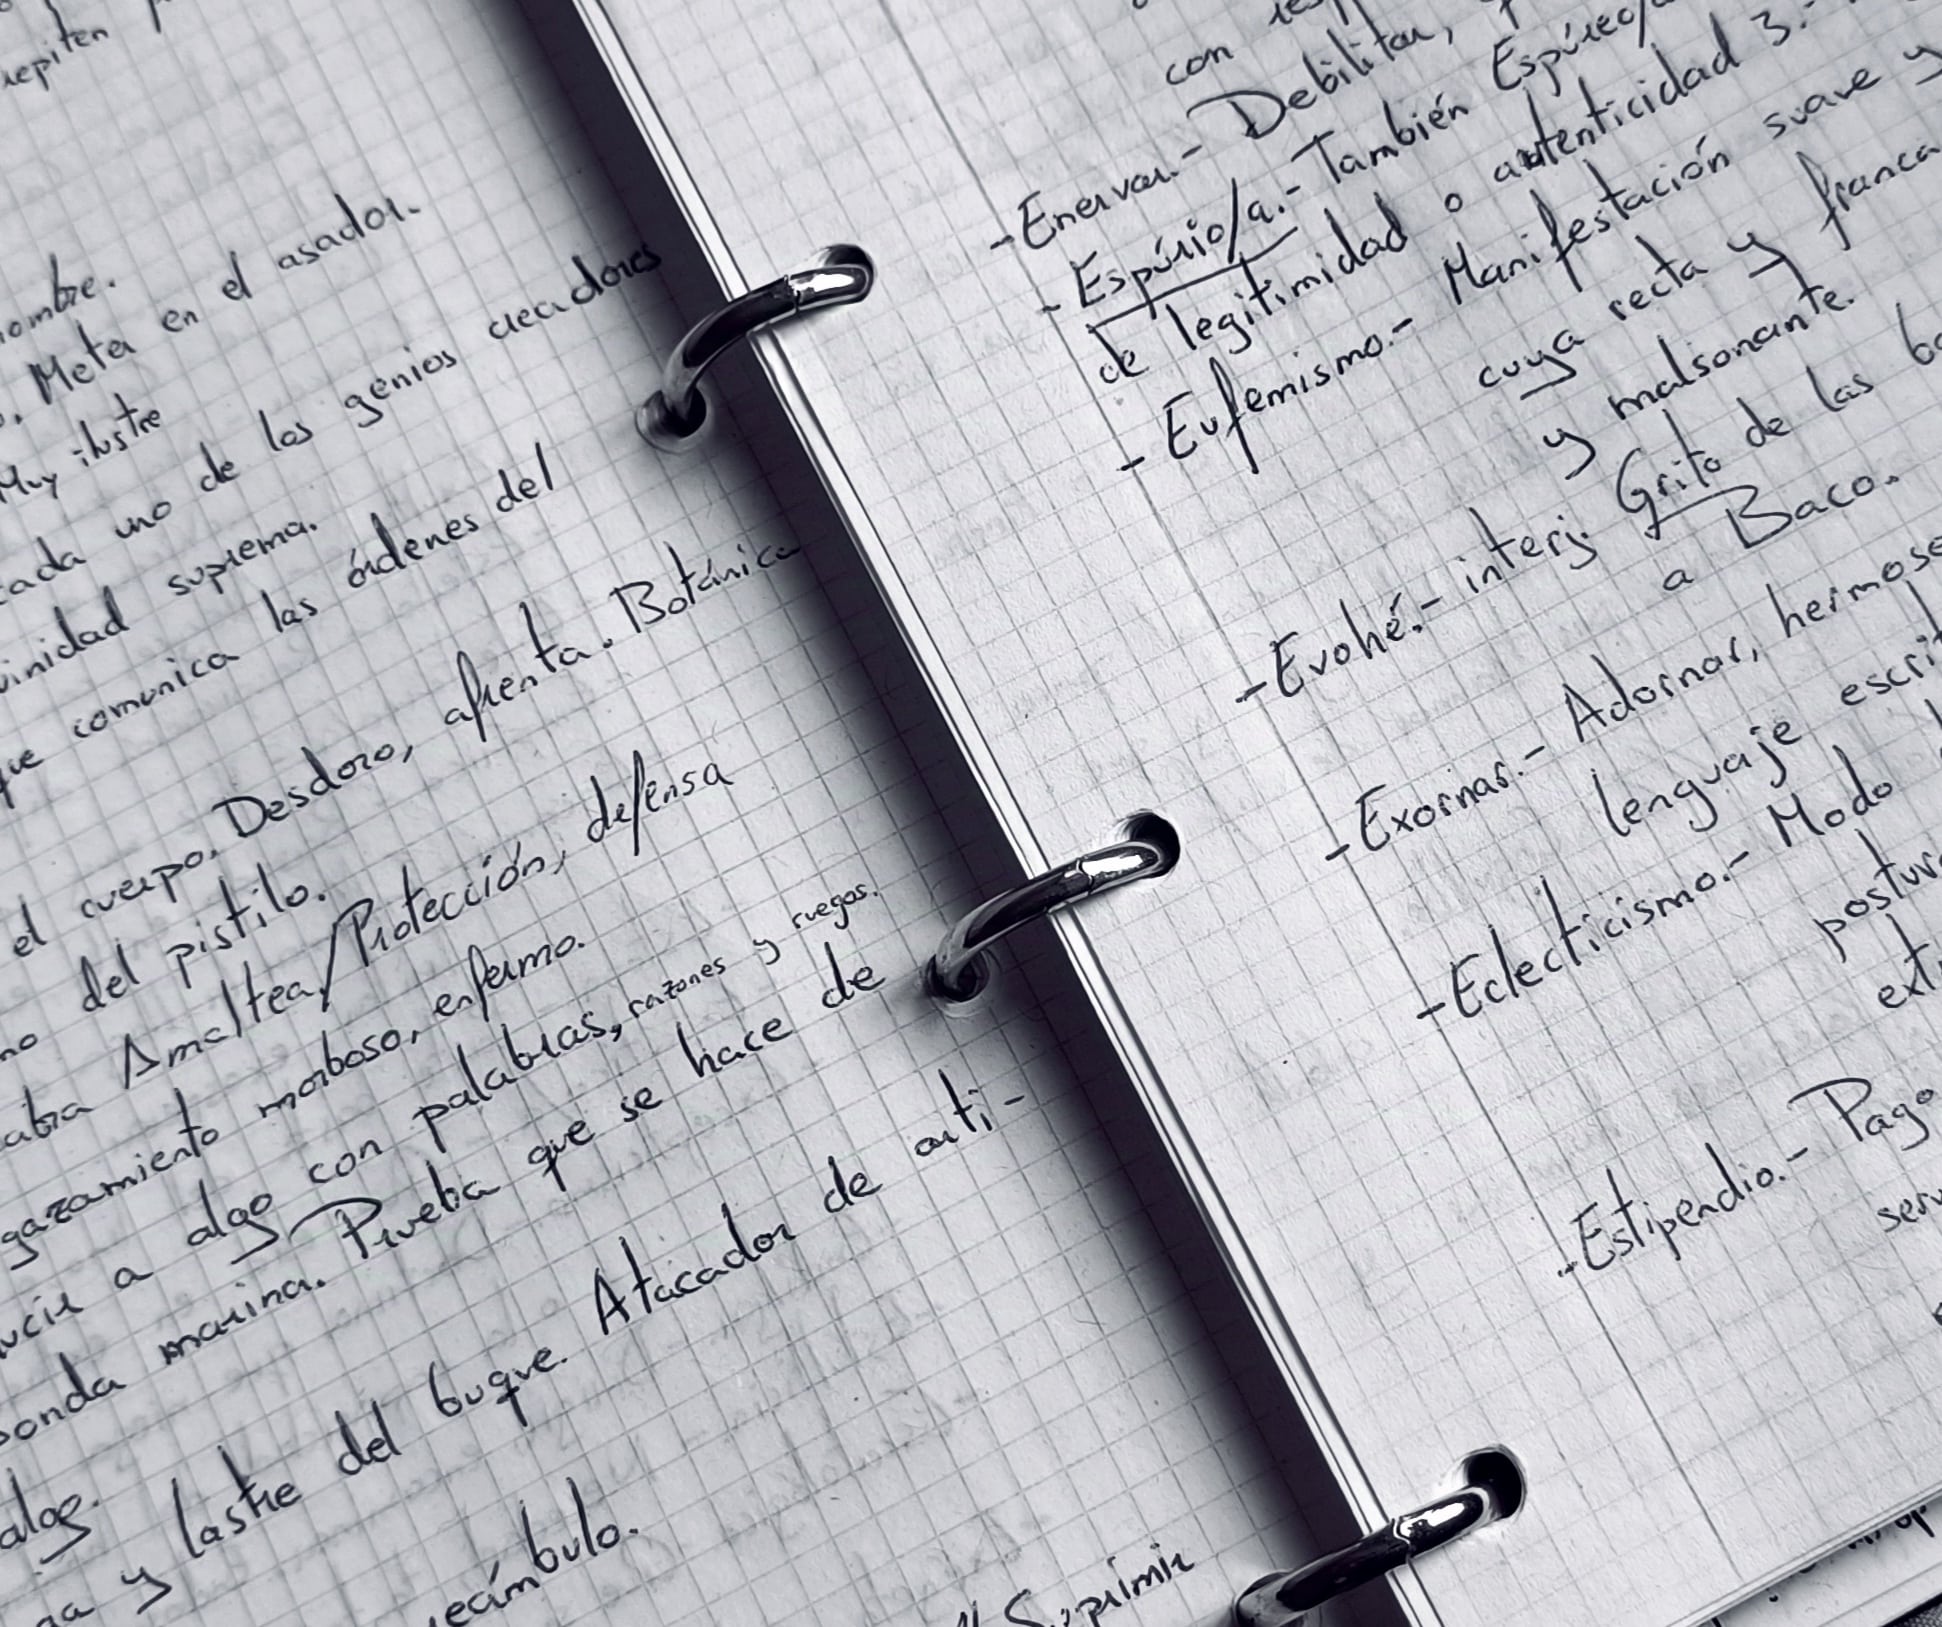 repiten
nombre.
Meta en el asador.
Muy ilustre
cada uno de los genios creadores
vinidad suprema.
que comunica las órdenes del
el cuerpo. Desdoro, afrenta. Botánica
no del pistilo.
abra Amaltea/Protección, defensa
gazamiento morboso, enfermo.
ucir a algo con palabras, razones y ruegos.
sonda marina. Prueba que se hace de
algo.
y lastre del buque. Atacador de arti-
ecámbulo.
Suprimir
con
-Enervar.- Debilitar,
-Espúrio/a.- También Espúreo/a
de legitimidad o autenticidad 3.-
-Eufemismo.- Manifestación suave y
cuya recta y franca
y malsonante.
-Evohé.- interj. Grito de las ba
a Baco.
-Exornar.- Adornar, hermose
lenguaje escrit
-Eclecticismo.- Modo
postura
ext
-Estipendio.- Pago
serv